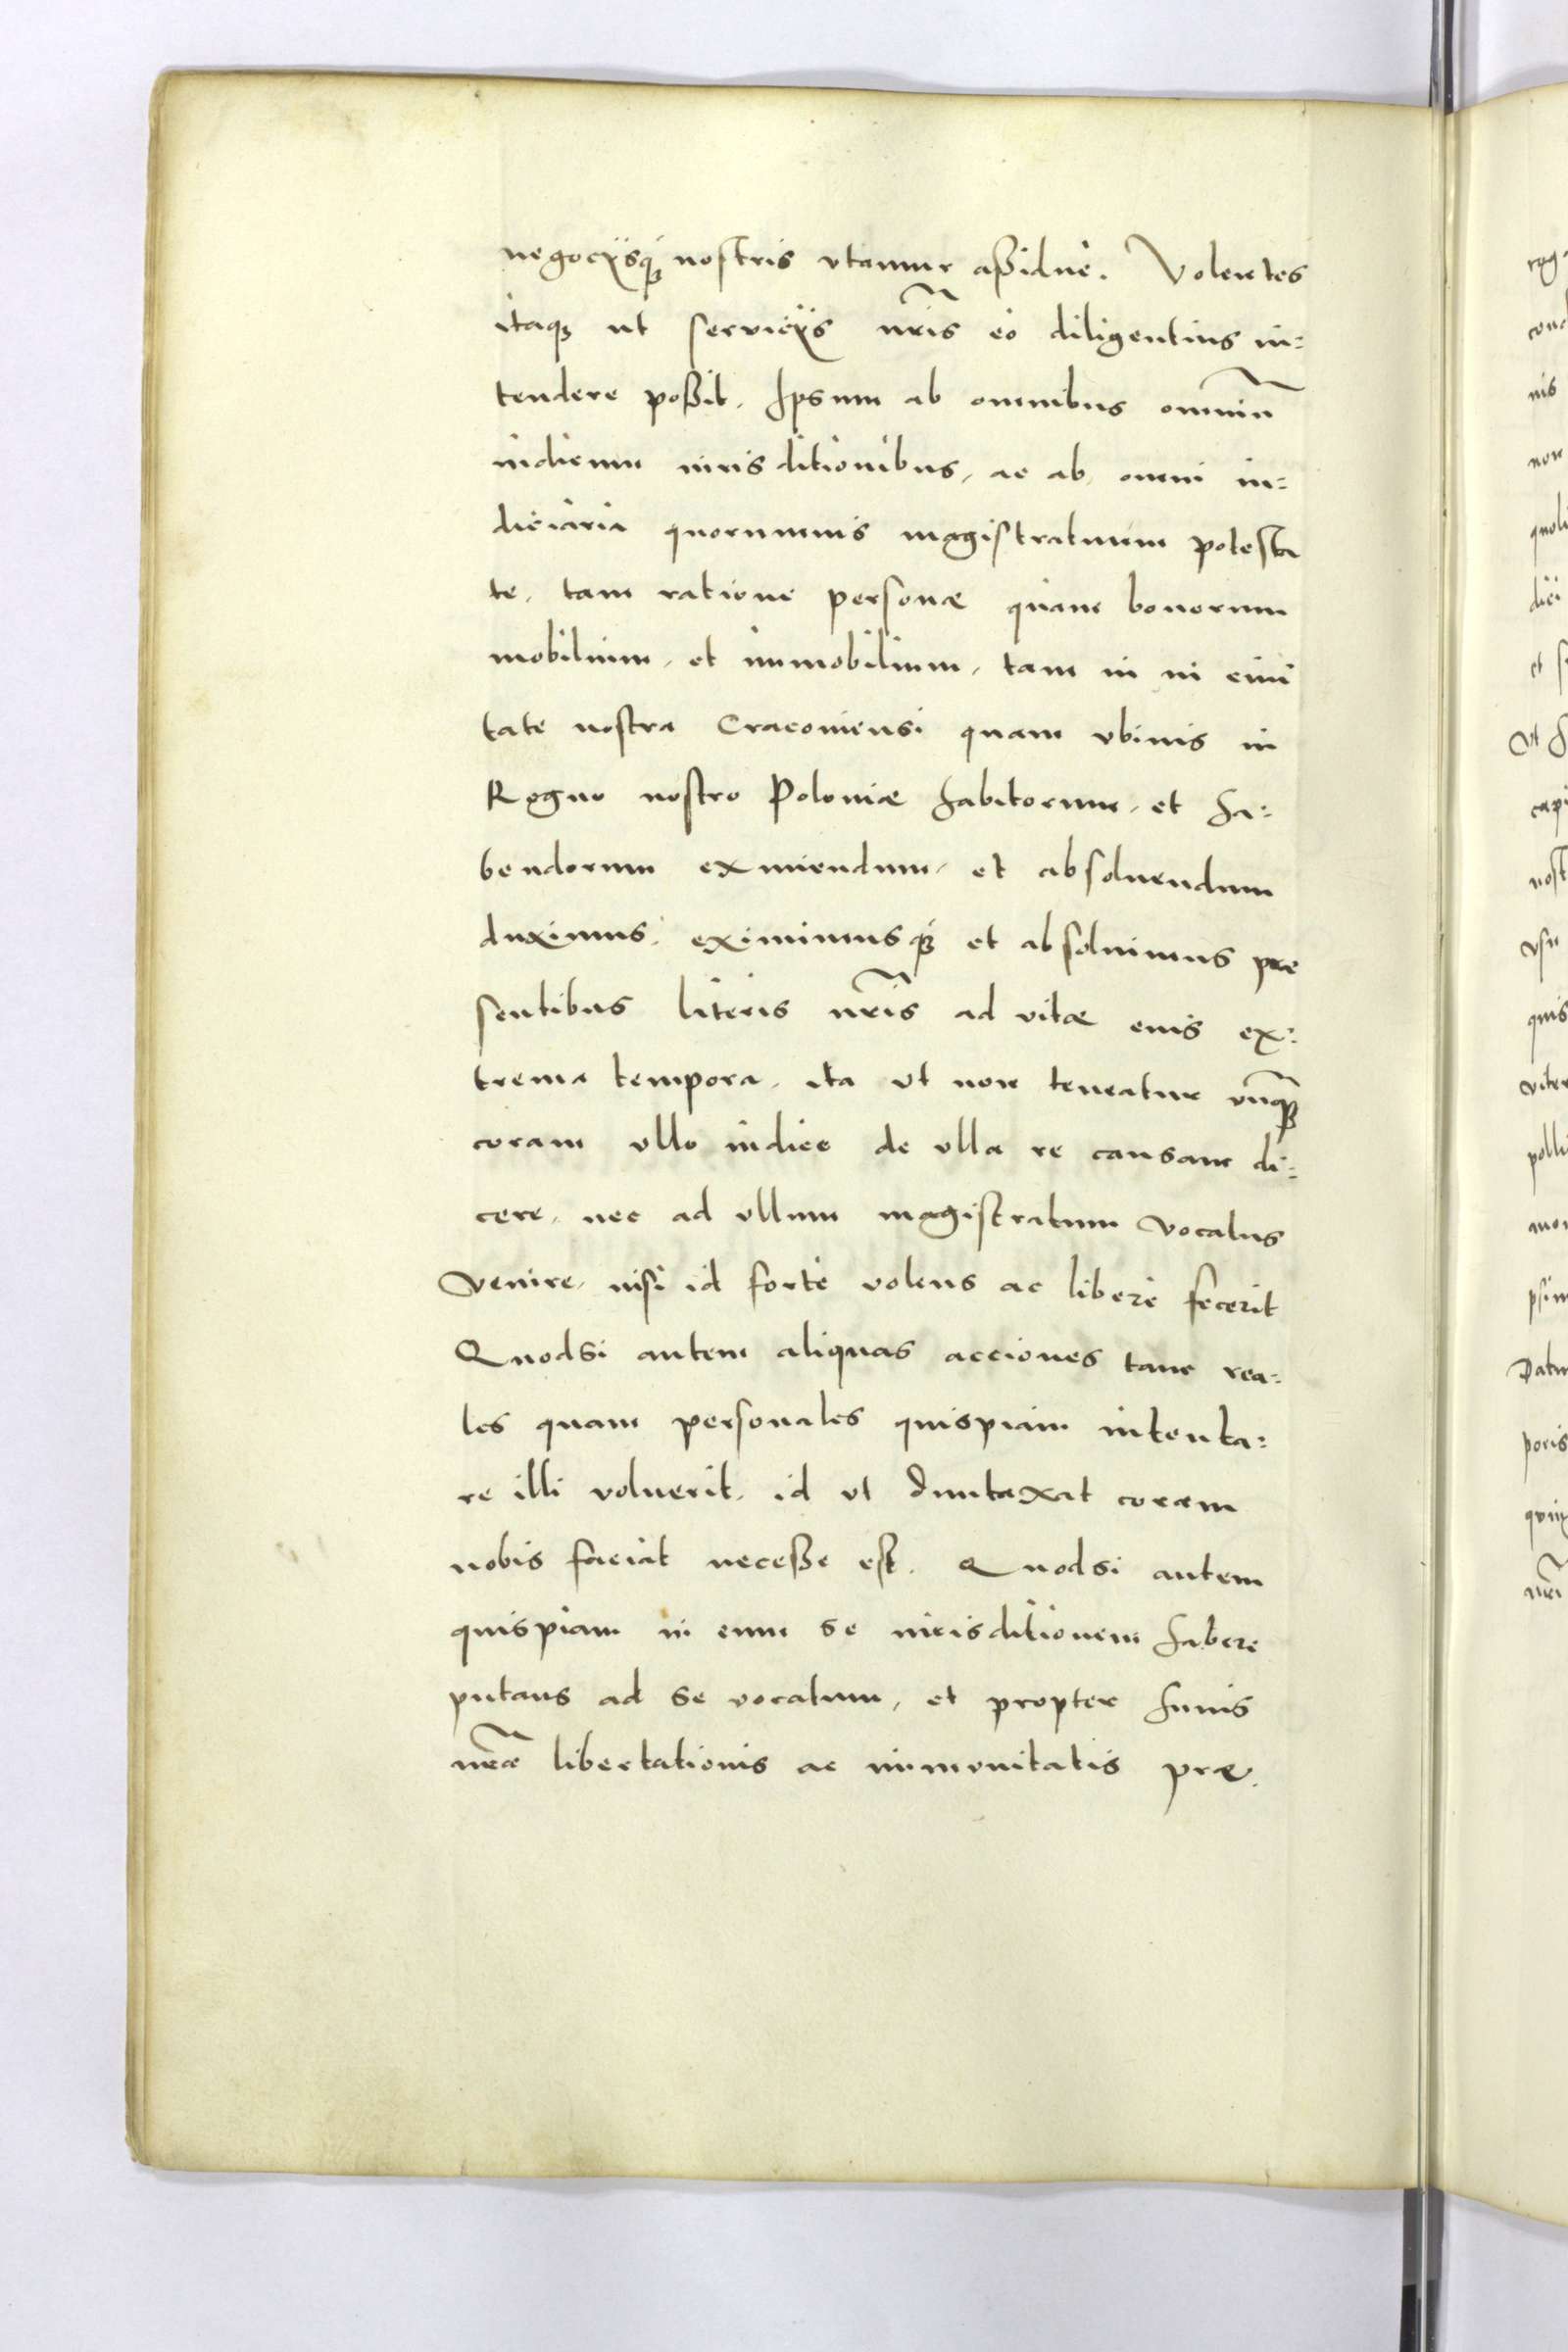 negocÿsq̃ nostris vtamur aßidue. Volentes
itaq̃ ut servicÿs nr̃is eo diligentius in=
tendere poßit. Ipsum ab omnibus omniũ
iudicum iurisditionibus, ac ab omni iu=
diciaria quorumuis magistratuum potesta
te, tam ratione personæ quam bonorum
mobilium, et immobilium, tam in in ciui
tate nostra Cracouiensi quam vbiuis in
Regno nostro Poloniæ habitorum, et ha=
bendorum eximiendum, et absoluendum
duximus, eximimusq̃ et absoluimus præ
sentibus literis nr̃is ad vitæ euis ex=
trema tempora, ita vt non teneatur vnq̃
coram vllo iudice de vlla re causam di=
cere, nec ad vllum magistratum vocatus
venire, nisi id forte volens ac libere fecerit
Quodsi autem aliquas acciones tam rea=
les quam personales quispiam intenta=
re illi voluerit, id vt duntaxat coram
nobis faciat neceße est. Quodsi autem
quispiam in eum se iurisditionem habere
putans ad se vocatum, et propter huius
nr̃æ libertationis ac immonitatis præ.
rog
cond
nis
non
quoli
dici
et
vt
capi
nost
vsu
quis
viter
polli
mon
psim
Datu
poris
nr̃i